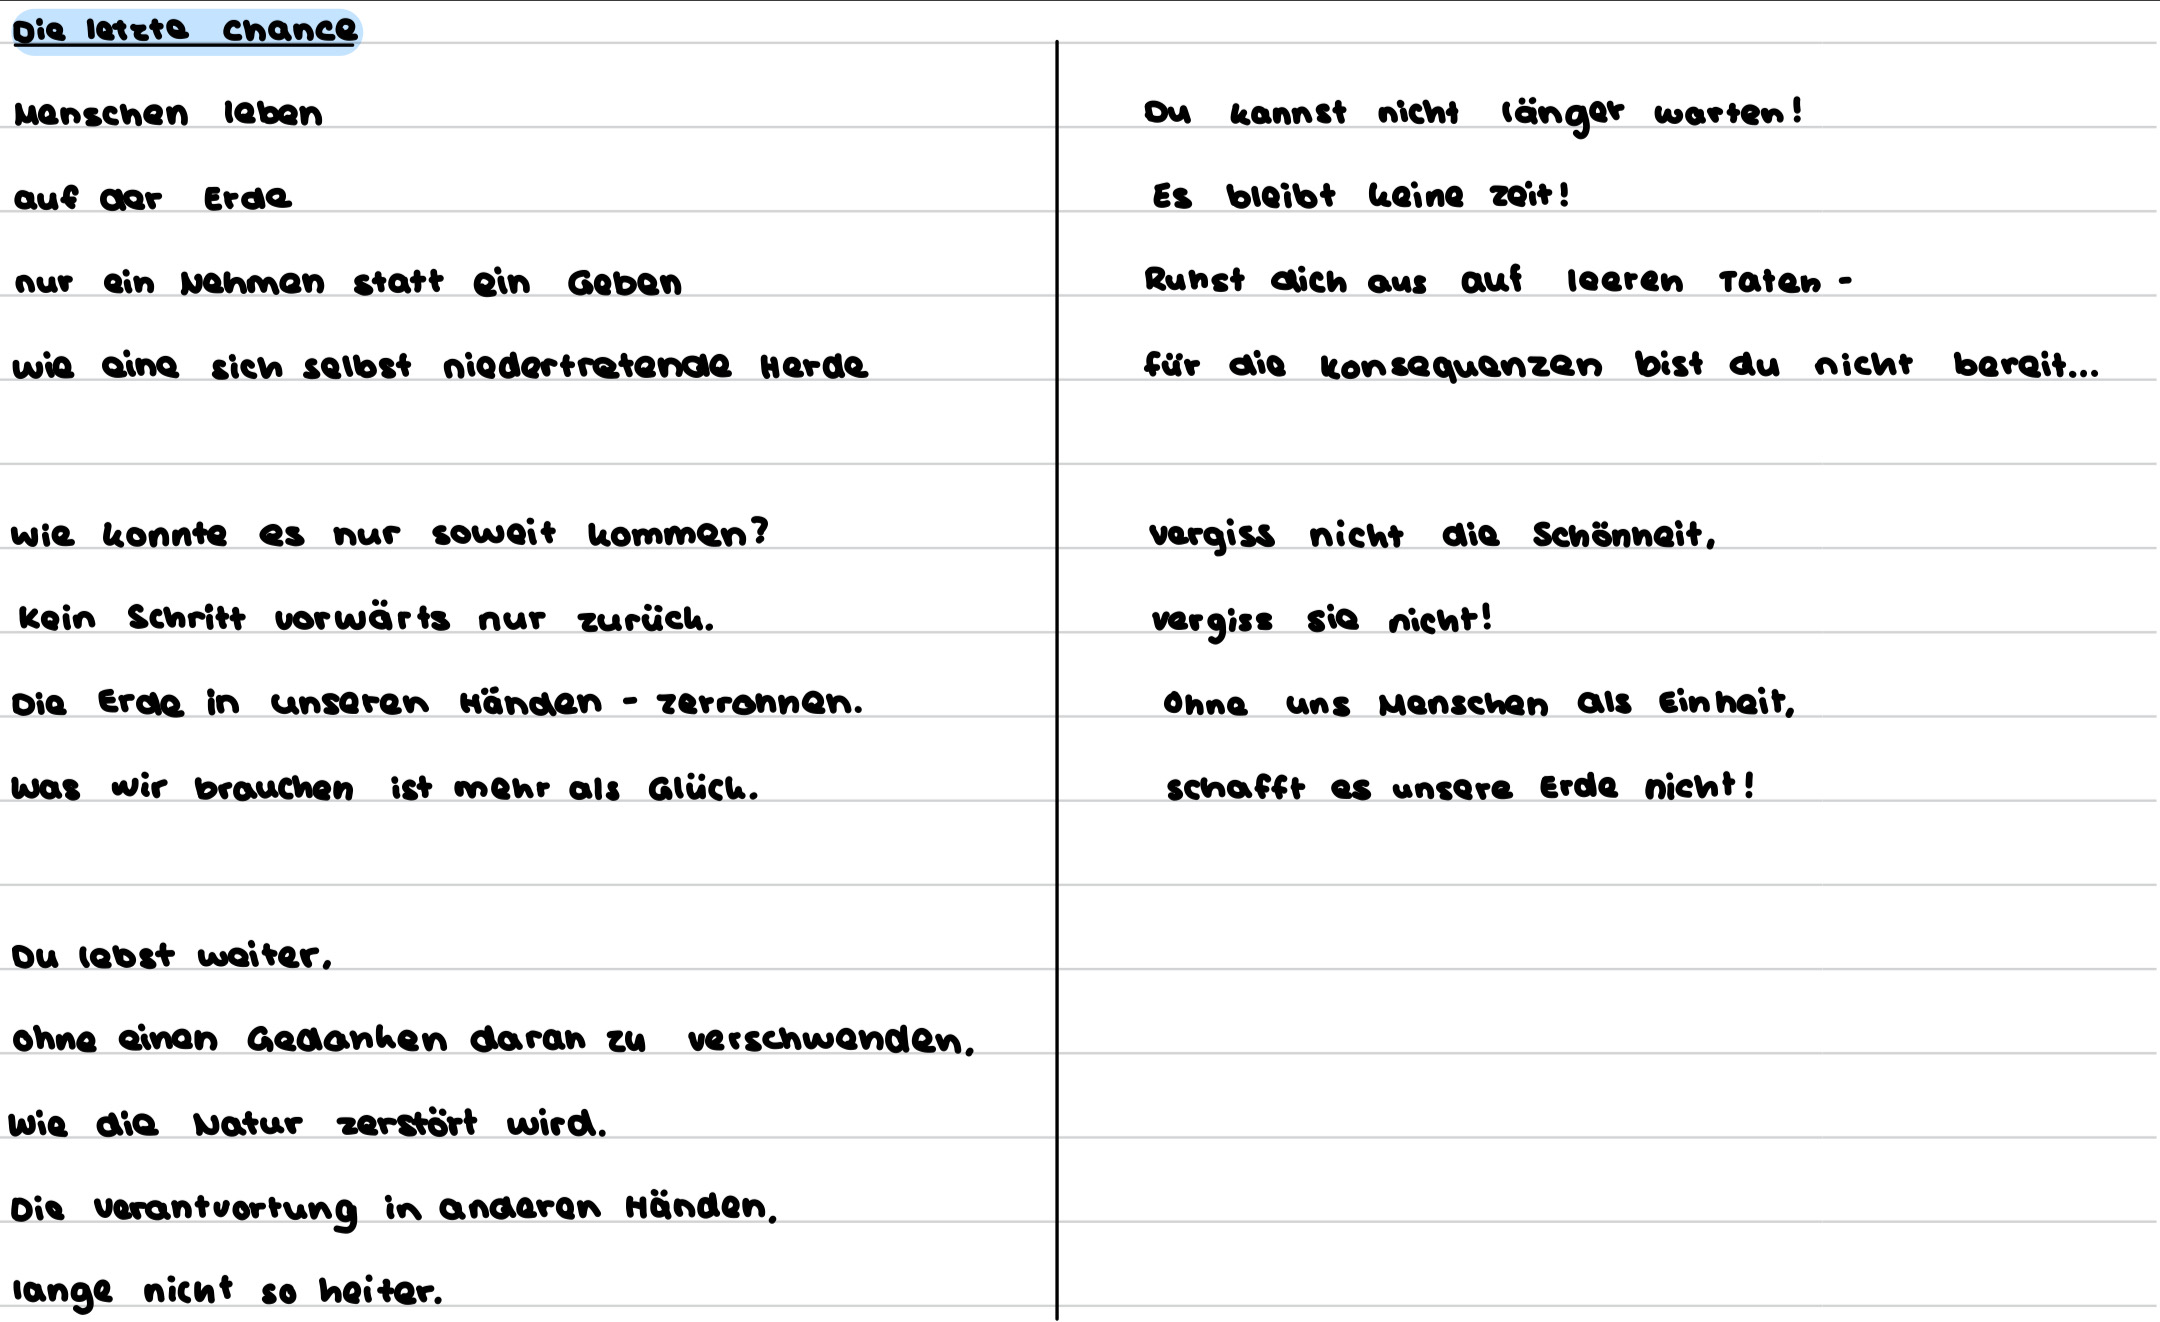 Die letzte Chance
Menschen leben
auf der Erde
nur ein Nehmen statt ein Geben
wie eine sich selbst niedertretende Herde
Wie konnte es nur soweit kommen?
Kein Schritt vorwärts nur zurück.
Die Erde in unseren Händen - zerronnen.
Was wir brauchen ist mehr als Glück.
Du lebst weiter,
ohne einen Gedanken daran zu verschwenden,
Wie die Natur zerstört wird.
Die Verantvortung in anderen Händen,
lange nicht so heiter.
Du kannst nicht länger warten!
Es bleibt keine Zeit!
Ruhst dich aus auf leeren Taten -
für die Konsequenzen bist du nicht bereit...
Vergiss nicht die Schönheit,
vergiss sie nicht!
Ohne uns Menschen als Einheit,
schafft es unsere Erde nicht!